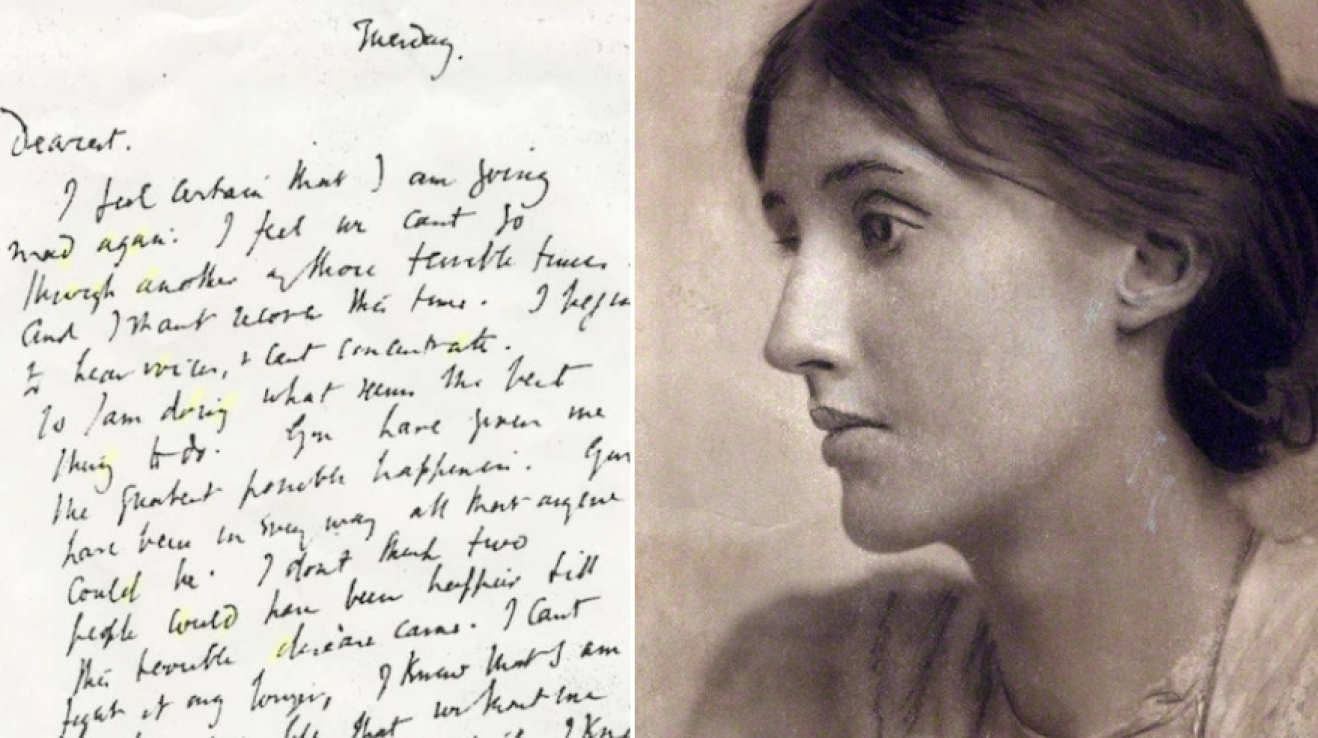 Tuesday.
Dearest.
I feel certain that I am going
mad again. I feel we cant go
through another of those terrible times.
And I shant recover this time. I begin
to hear voices, & cant concentrate.
So I am doing what seems the best
thing to do. You have given me
the greatest possible happiness. You
have been in every way all that anyone
could be. I dont think two
people could have been happier till
this terrible disease came. I cant
fight it any longer, I know that I am
life that without me
I